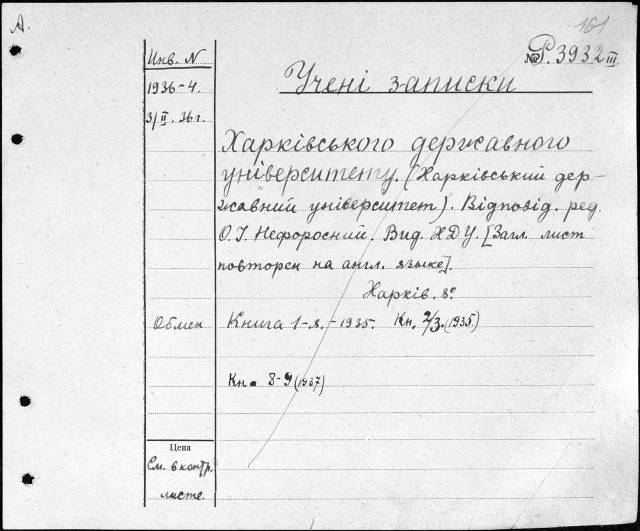 А.
161
Инв. N
№ Р. 3932 III
1936-4.
Учені записки
3/II. 36 г.
Харківського державного
університету. (Харківський дер-
жавний університет). Відповід. ред.
О.І. Нефоросний. Вид. ХДУ. [Загл. лист
повторен на англ. языке].
Харків. 8°.
Обмен
Книга 1-я. - 1935. Кн. 2/3. (1935.)
Кн. 8-9 (1937)
Цена
См. в контр.
листе.